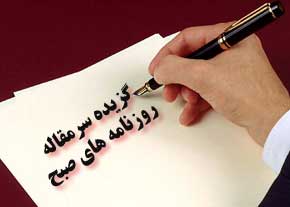 گزیده سرمقاله
روزنامه های صبح